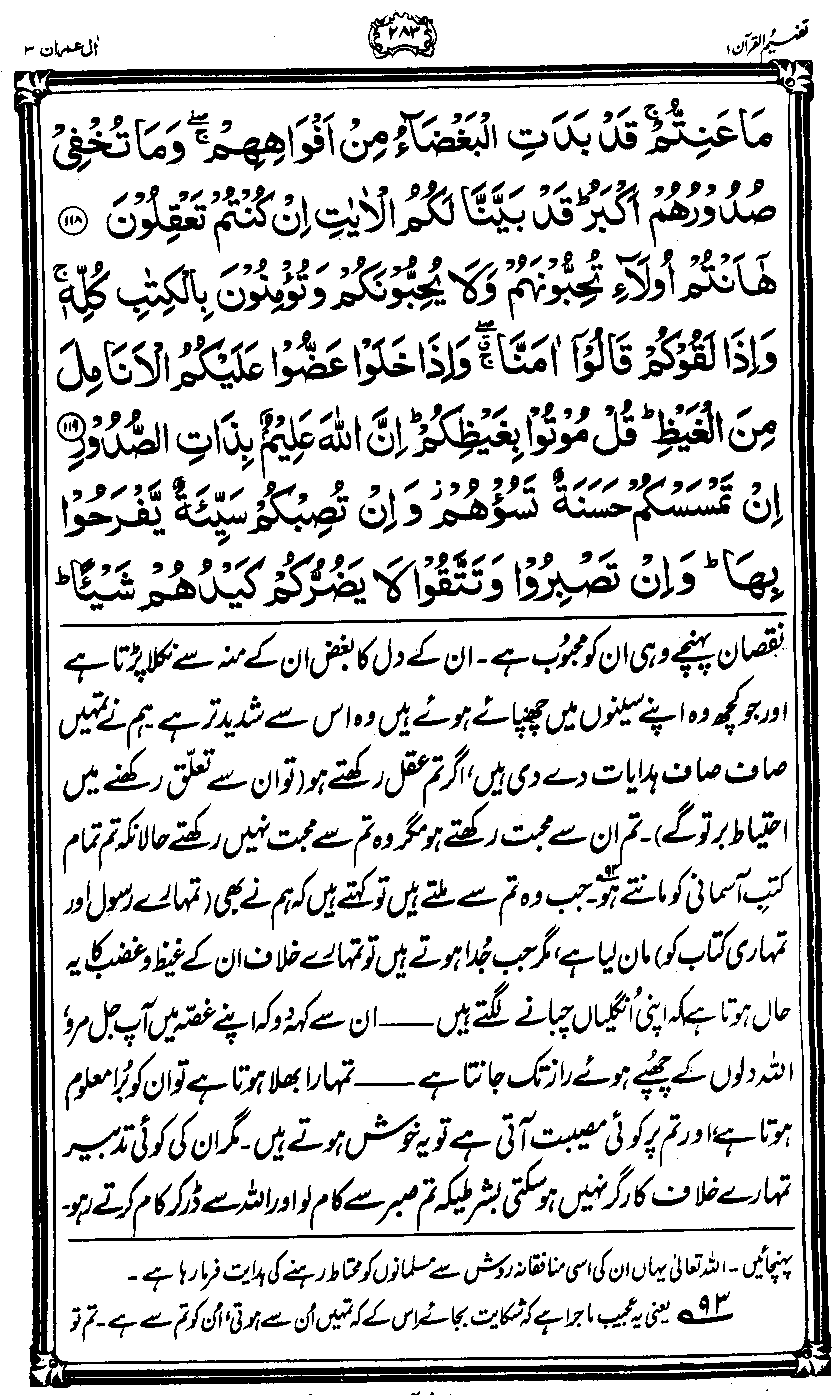 تفہیم القرآن ۱
۲۸۳
اٰل عمران ۳
مَا عَنِتُّمْ ۚ قَدْ بَدَتِ الْبَغْضَآءُ مِنْ اَفْوَاهِهِمْ ۖۚ وَمَا تُخْفِیْ
صُدُوْرُهُمْ اَكْبَرُ ؕ قَدْ بَیَّنَّا لَكُمُ الْاٰیٰتِ اِنْ كُنْتُمْ تَعْقِلُوْنَ ﴿۱۱۸﴾
هٰۤاَنْتُمْ اُولَآءِ تُحِبُّوْنَهُمْ وَلَا یُحِبُّوْنَكُمْ وَتُؤْمِنُوْنَ بِالْكِتٰبِ كُلِّهٖ ۚ
وَاِذَا لَقُوْكُمْ قَالُوْۤا اٰمَنَّا ۖۚ وَاِذَا خَلَوْا عَضُّوْا عَلَیْكُمُ الْاَنَامِلَ
مِنَ الْغَیْظِ ؕ قُلْ مُوْتُوْا بِغَیْظِكُمْ ؕ اِنَّ اللّٰهَ عَلِیْمٌۢ بِذَاتِ الصُّدُوْرِ ﴿۱۱۹﴾
اِنْ تَمْسَسْكُمْ حَسَنَةٌ تَسُؤْهُمْ ز وَاِنْ تُصِبْكُمْ سَیِّئَةٌ یَّفْرَحُوْا
بِهَا ؕ وَاِنْ تَصْبِرُوْا وَتَتَّقُوْا لَا یَضُرُّكُمْ كَیْدُهُمْ شَیْـًٔا ؕ
نقصان پہنچے وہی ان کو محبوب ہے۔ ان کے دل کا بغض ان کے منہ سے نکلا پڑتا ہے
اور جو کچھ وہ اپنے سینوں میں چھپائے ہوئے ہیں وہ اس سے شدید تر ہے ہم نے تمہیں
صاف صاف ہدایات دے دی ہیں، اگر تم عقل رکھتے ہو (تو ان سے تعلق رکھنے میں
احتیاط برتو گے)۔ تم ان سے محبت رکھتے ہو مگر وہ تم سے محبت نہیں رکھتے حالانکہ تم تمام
کتبِ آسمانی کو مانتے ہو۹۳۔ جب وہ تم سے ملتے ہیں تو کہتے ہیں کہ ہم نے بھی (تمہارے رسول اور
تمہاری کتاب کو) مان لیا ہے، مگر جب جُدا ہوتے ہیں تو تمہارے خلاف ان کے غیظ و غضب کا یہ
حال ہوتا ہے کہ اپنی اُنگلیاں چبانے لگتے ہیں —— ان سے کہہ دو کہ اپنے غصّہ میں آپ جل مرو،
اللہ دلوں کے چھپے ہوئے راز تک جانتا ہے —— تمہارا بھلا ہوتا ہے تو ان کو بُرا معلوم
ہوتا ہے، اور تم پر کوئی مصیبت آتی ہے تو یہ خوش ہوتے ہیں۔ مگر ان کی کوئی تدبیر
تمہارے خلاف کارگر نہیں ہو سکتی بشرطیکہ تم صبر سے کام لو اور اللہ سے ڈر کر کام کرتے رہو۔
پہنچائیں۔ اللہ تعالیٰ یہاں ان کی اسی منافقانہ روش سے مسلمانوں کو محتاط رہنے کی ہدایت فرما رہا ہے۔
۹۳ یعنی یہ عجیب ماجرا ہے کہ شکایت بجائے اس کے کہ تمہیں اُن سے ہوتی، اُن کو تم سے ہے۔ تم تو